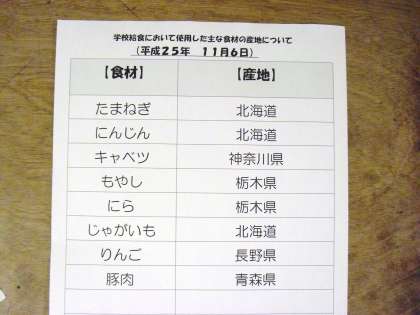 学校給食において使用した主な食材の産地について
（平成２５年　１１月６日）
【食材】　【産地】
たまねぎ　北海道
にんじん　北海道
キャベツ　神奈川県
もやし　栃木県
にら　栃木県
じゃがいも　北海道
りんご　長野県
豚肉　青森県